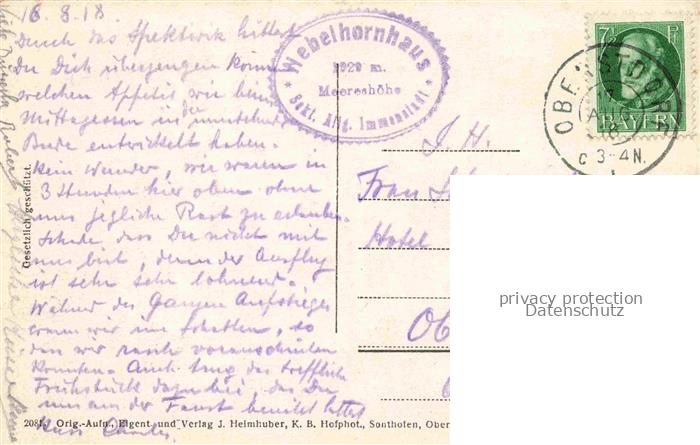 16.8.18
Durch das Spektiv hättest
Du Dich überzeugen können
welchen Appetit wir beim
Mittagessen in der
Bude entwickelt haben.
Kein Wunder, wir waren in
3 Stunden hier oben ohne
uns jegliche Rast zu erlauben.
Schade, dass Du nicht mit
uns bist, denn der Ausflug
ist sehr sehr lohnend.
Während des Ganzen Aufstieges
waren wir im Schatten, so
dass wir rasch voranschreiten
konnten. Auch trug das treffliche
Frühstück dazu bei das Du
uns aus der Faust bereitet hattest
Kuss Charles
Gesetzlich geschützt.
Nebelhornhaus
1929 m.
Meereshöhe
Sekt. Allg. Immenstadt
7½ Pf
BAYERN
OBERSTDORF
3-4N.
Frau
Hotel
privacy protection
Datenschutz
2081. Orig.-Aufn., Eigent. und Verlag J. Heimhuber, K. B. Hofphot., Sonthofen, Ober